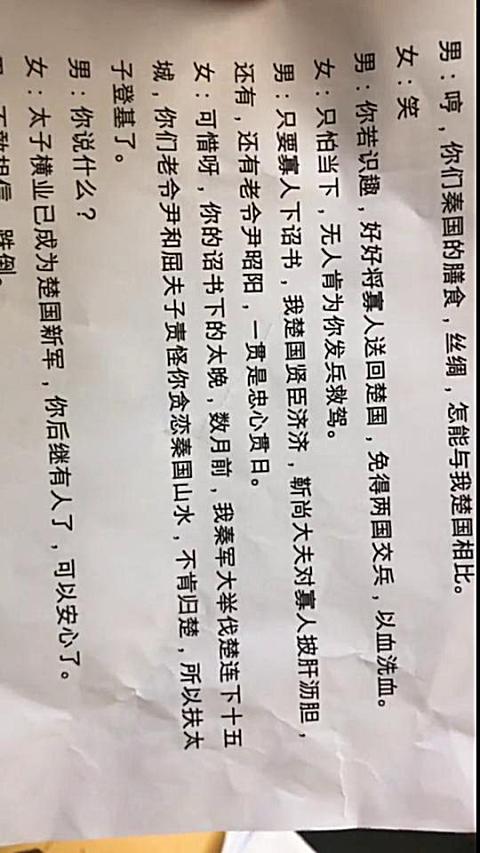 男：哼，你们秦国的膳食，丝绸，怎能与我楚国相比。
女：笑
男：你若识趣，好好将寡人送回楚国，免得两国交兵，以血洗血。
女：只怕当下，无人肯为你发兵救驾。
男：只要寡人下诏书，我楚国贤臣济济，靳尚大夫对寡人披肝沥胆，
还有，还有老令尹昭阳，一贯是忠心贯日。
女：可惜呀，你的诏书下的太晚，数月前，我秦军大举伐楚连下十五
城，你们老令尹和屈夫子责怪你贪恋秦国山水，不肯归楚，所以扶太
子登基了。
男：你说什么？
女：太子横业已成为楚国新军，你后继有人了，可以安心了。
不敢相信，跌倒。